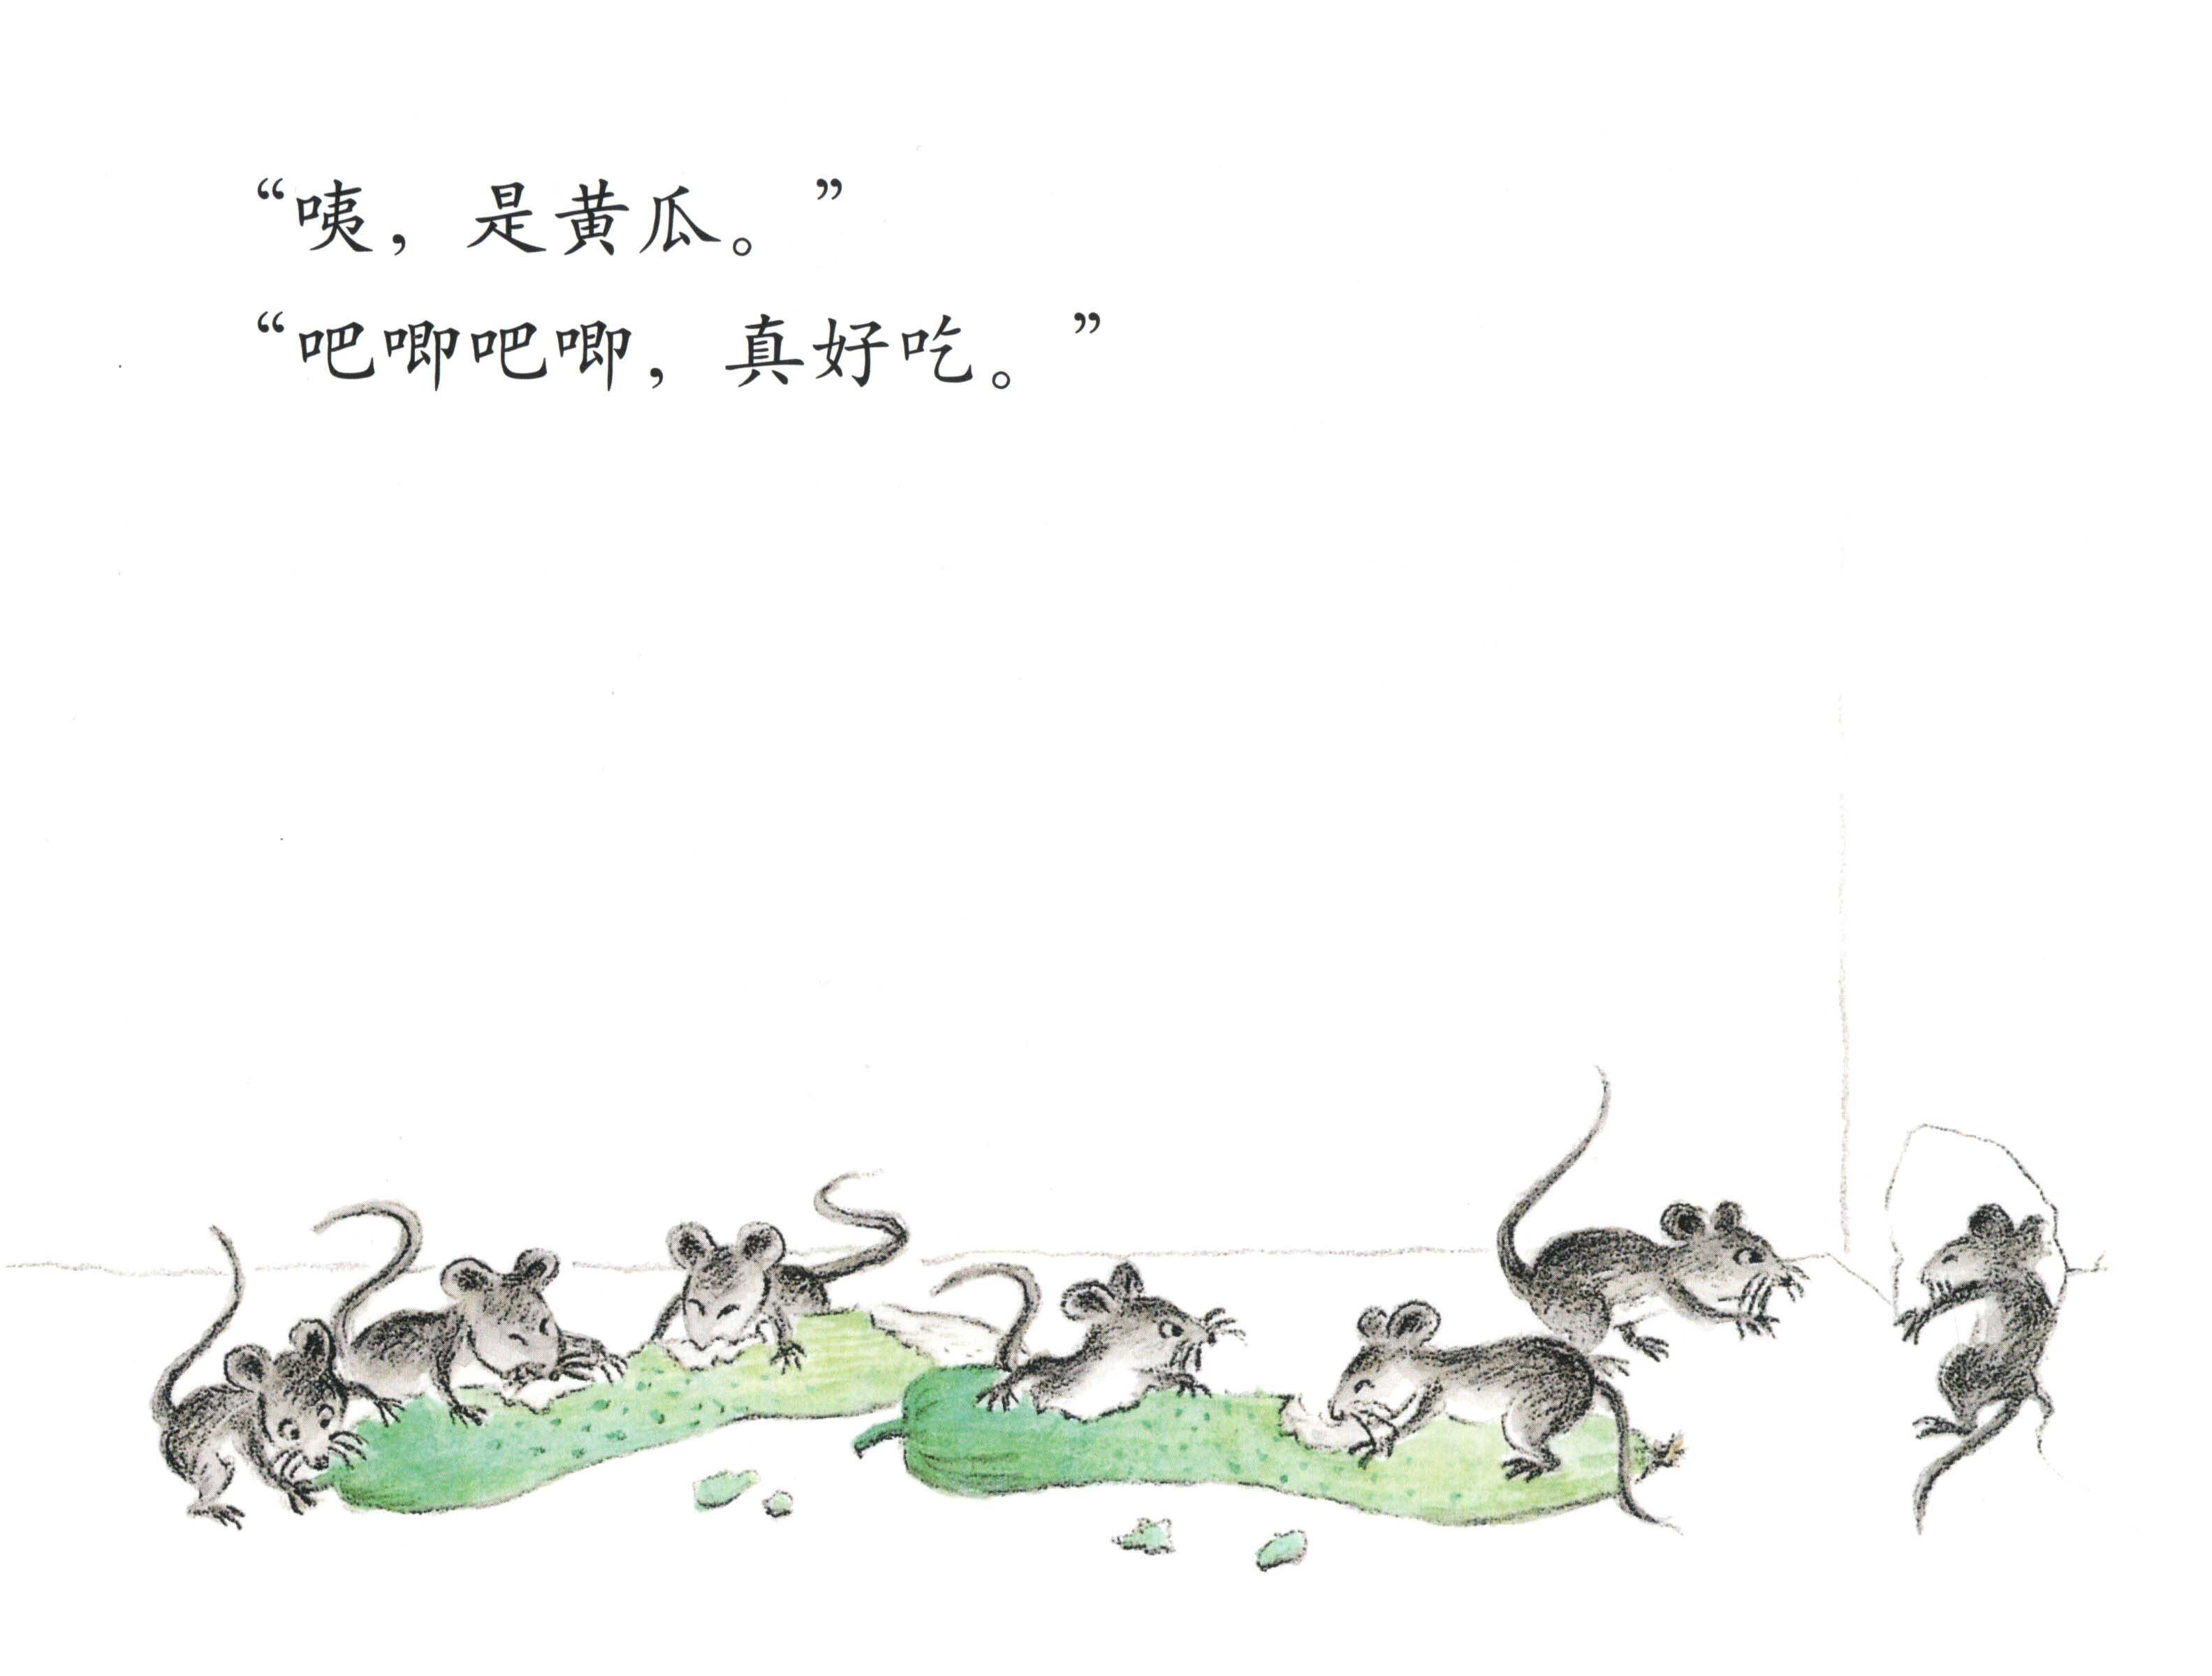 “咦，是黄瓜。”
“吧唧吧唧，真好吃。”